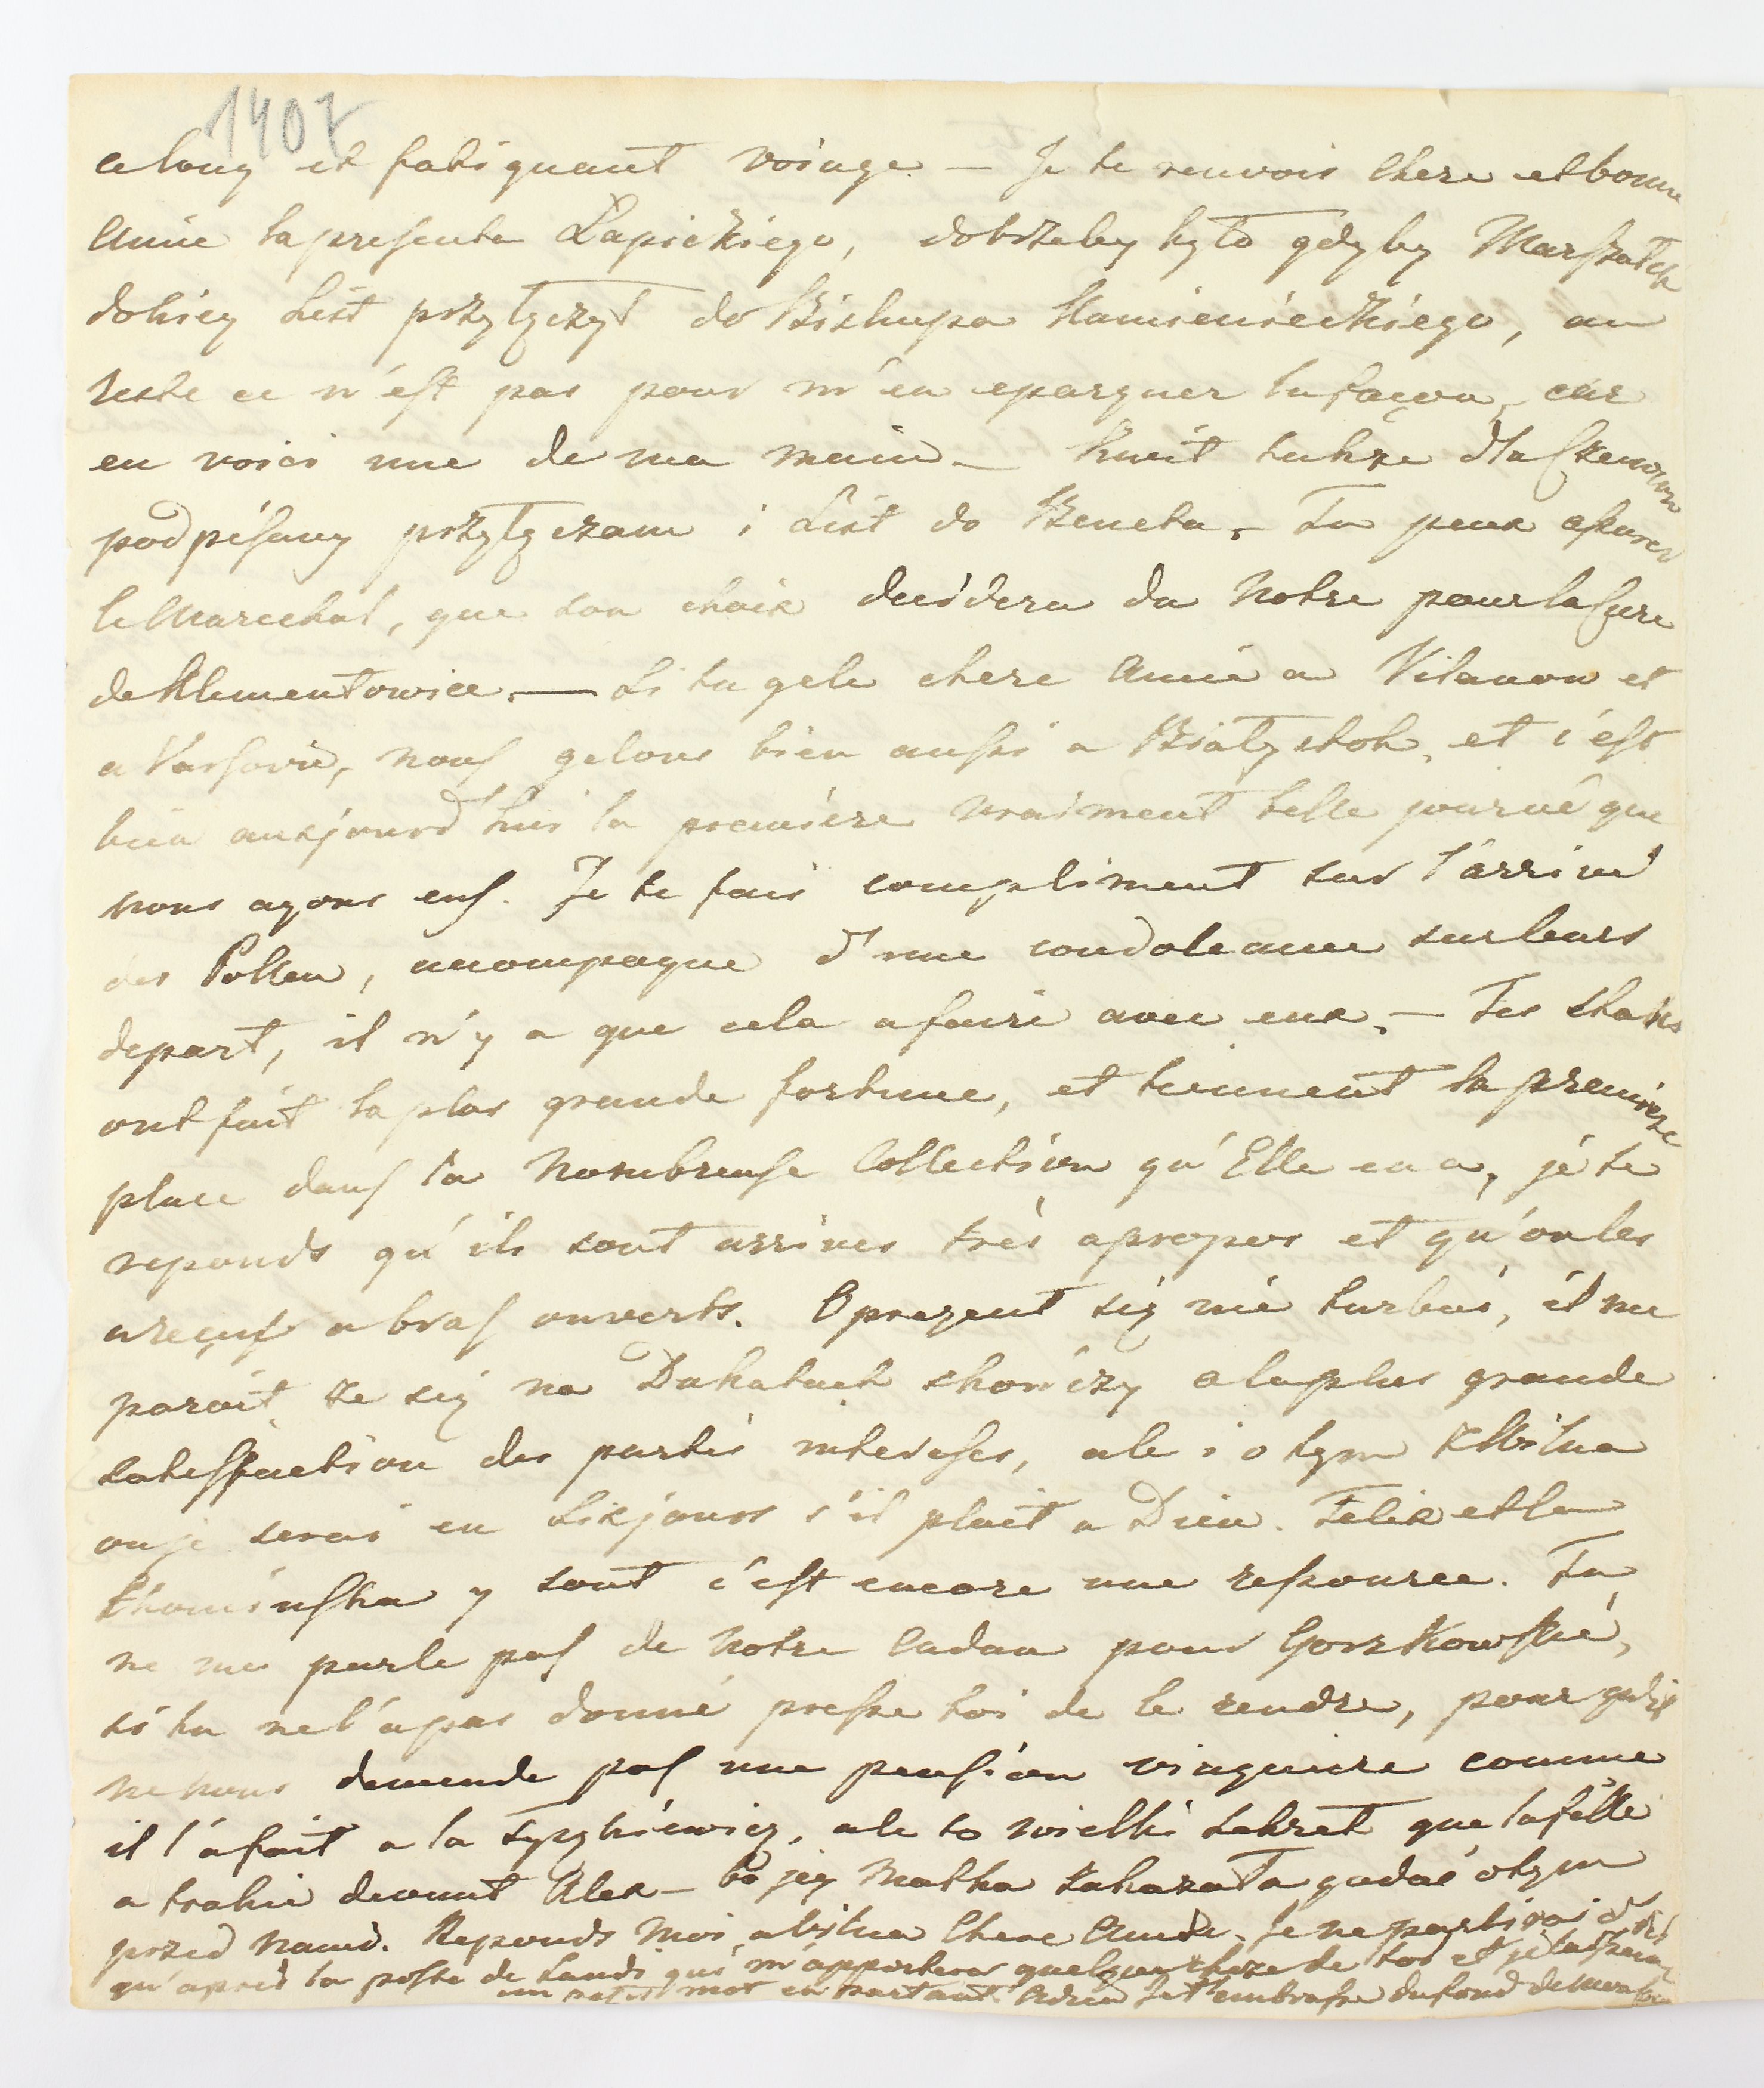 1407
ce long et fatiguant voiage. — Je te renvois Chere et bonne
Amie la presenta Łapickiego, dobrzeby było gdyby Marszałek
do niey List przyłączył do Biskupa Kamienieckiego, au
reste ce n'est pas pour m'en eparguer la façon, car
en voici une de ma main — Kwit takze dla
podpisany przyłączam i List do Beneta. — Tu peux assurer
le Marechal, que son choix decidera du Notre pour la Cure
de Klementowice. — Si tu gele chere Amie a Vilanow et
a Varsovie, nous gelons bien aussi a Białystok, et c'est
bien auxjourd'hui la première vraiment belle journé que
nous ayons eus. Je te fais compliment sur l'arrivé
des Potten, accompagne d'une condoleance sur leurs
depart, il n'y a que cela a faire avec eux. — Tes Chats
ont fait la plus grande fortune, et tiennent la premiere
place dans la Nombreuse Collection qu'Elle en a, je te
reponds qu'ils sont arrives très apropos et qu'on les
a reçus a bras ouverts. O prezent się nie turbuj, il me
paroit, ze się na Dukatach skończy a la plus grande
satisfaction des partis interesses, ale i o tym z Wilna
ou je serai en Six jours s'il plait a Dieu. Felix et la
Chominska y sont c'est encore une ressource. Tu
ne me parle pas de Notre Cadau pour Gorzkowski,
si tu ne l'a pas donné presse toi de le rendre, pour qu'il
ne nous demende pas une pension viaguaire comme
il l'a fait a la Tyszkiewicz, ale to wielki sekret que la fille
a trahie devant Alex — bo jey Matka zakazała gadać o tym
przed nami. Reponds moi a Vilna Chere Amie. Je ne partirai d'ici
qu'après la poste de Lundi qui m'apportera quelque choze de toi et je
un petit mot en partant. Adieu Je t'embrasse du fond de mon